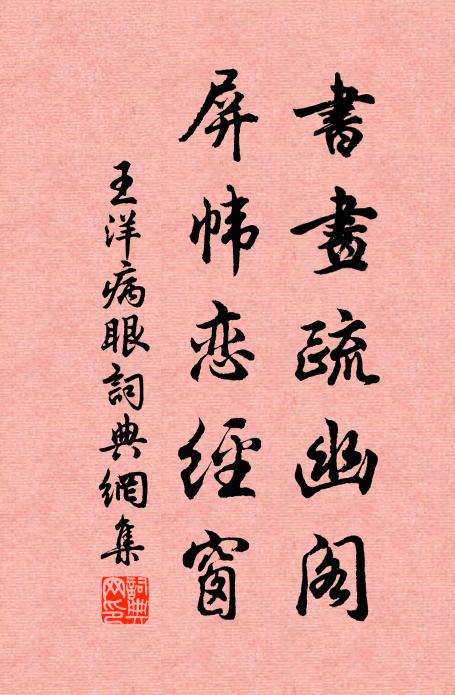 書畫疏幽閣
屏帏恋經窗
王洋病眼詞典網集
詞典网印